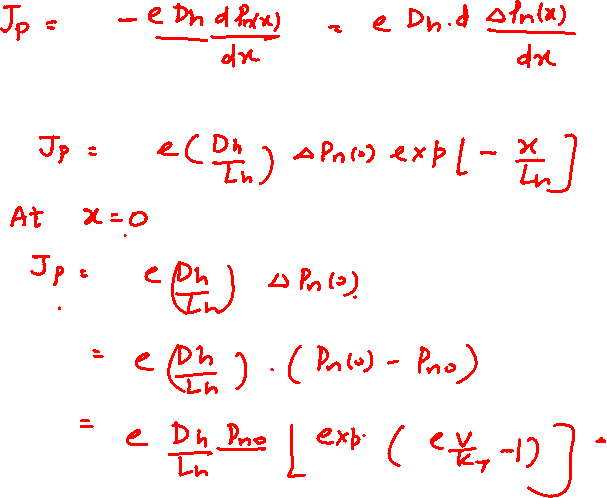 Jp = - e Dh d Pn(x) / dx = e Dh . d ΔPn(x) / dx
Jp = e ( Dh / Lh ) ΔPn(0) exp [ - x / Lh ]
At x = 0
Jp = e ( Dh / Lh ) ΔPn(0)
= e ( Dh / Lh ) . ( Pn(0) - Pno )
= e Dh / Lh Pno [ exp. ( e V / KT - 1 ) ] .